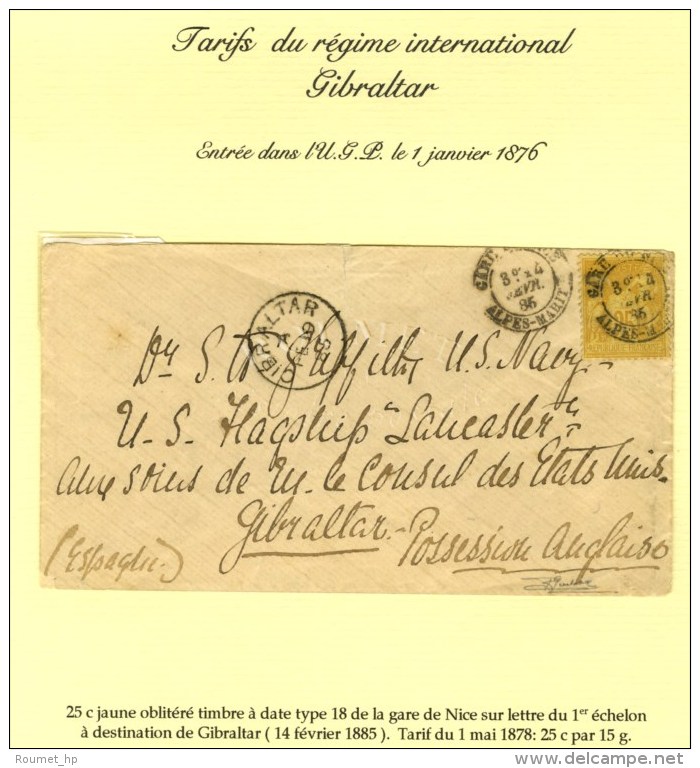 Tarifs du régime international
Gibraltar
Entrée dans l'U.G.P. le 1 janvier 1876
ALPES-MARIT
85
ALPES-MARIT
85
GIBRALTAR
A
Dr. S. U.S. Navy
U.S. Flagship "Lancaster"
aux soins de M. le Consul des Etats Unis
Gibraltar - Possession Anglaise
(Espagne)
25 c jaune oblitéré timbre à date type 18 de la gare de Nice sur lettre du 1er échelon
à destination de Gibraltar ( 14 février 1885 ). Tarif du 1 mai 1878: 25 c par 15 g.
Roumet_hp
delcampe.net